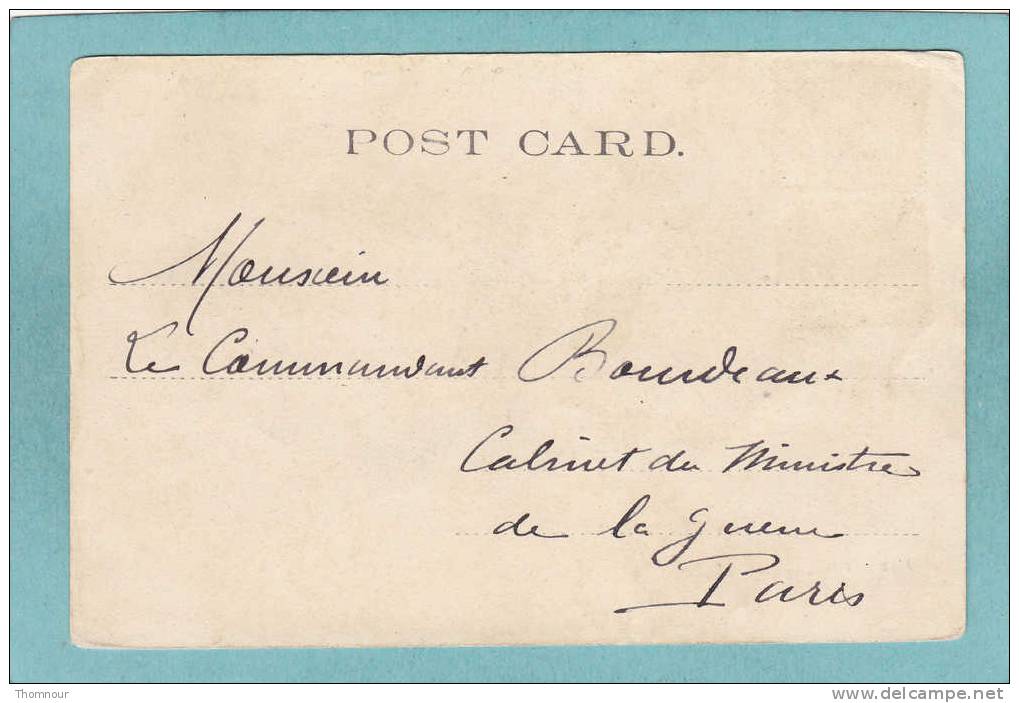 POST CARD.
Monsieur
Le Commandant Bourdeaux
Cabinet du Ministre
de la guerre
Paris
Thomnour
http://www.delcampe.net